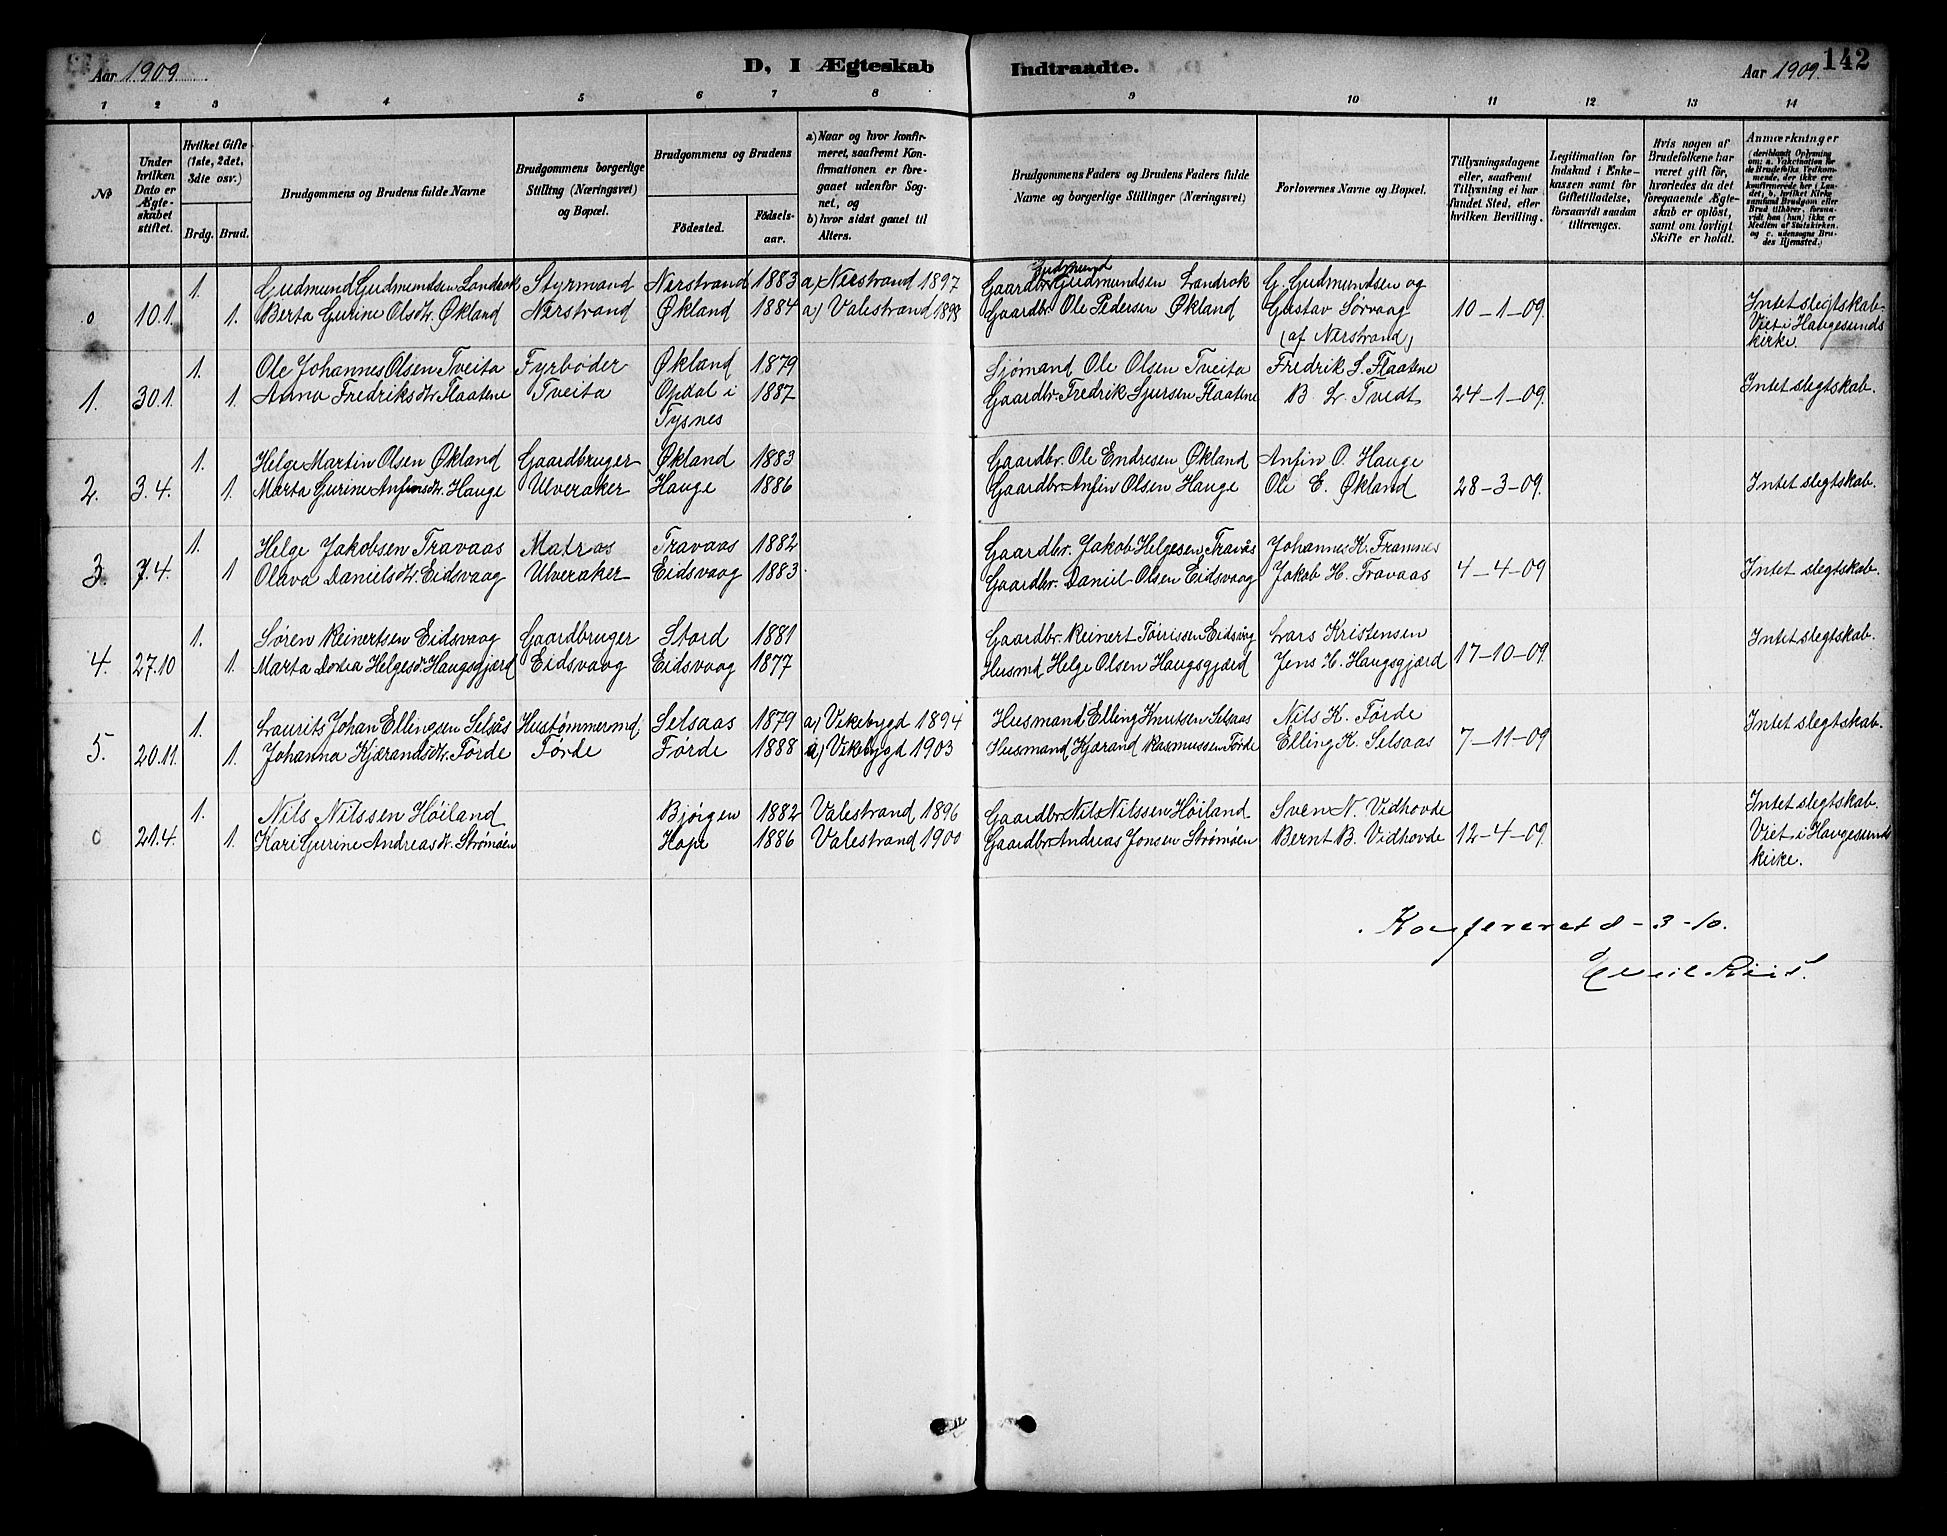 Aar 1909.
D, I Ægteskab
Indtraadte.
Aar 1909.
142
1 2 3 4 5 6 7 8 9 10 11 12 13 14
No
Under hvilken Dato er Ægteskabet stiftet.
Hvilket Gifte (1ste, 2det, 3die osv.)
Brdg. Brud.
Brudgommens og Brudens fulde Navne
Brudgommens borgerlige Stilling (Næringsvei) og Bopæl.
Brudgommens og Brudens
Födested.
Födselsaar.
a) Naar og hvor konfirmeret, saafremt Konfirmationen er foregaaet udenfor Sognet, og
b) hvor sidst gaaet til Alters.
Brudgommens Faders og Brudens Faders fulde Navne og borgerlige Stillinger (Næringsvei)
Forlovernes Navne og Bopæl.
Tillysningsdagene eller, saafremt Tillysning ei har fundet Sted, efter hvilken Bevilling.
Legitimation for Indskud i Enkekassen samt for Giftetilladelse, forsaavidt saadan tiltrænges.
Hvis nogen af Brudefolkene har været gift för, hvorledes da det foregaaende Ægteskab er oplöst, samt om lovligt Skifte er holdt.
Anmærkninger
(deriblandt Oplysning om: a. Vakcination for de Brudefolks Vedkommende, der ikke ere konfirmerede her i Landet; b. hvilket Kirkesamfund Brudgom eller Brud tilhörer, forsaavidt han (hun) ikke er Medlem af Statskirken. og c. udensogns Brudes Hjemsted.)
1. Gudmund Gudmundsen Landrok Styrmand Nerstrand 1883 a) Nerstrand 1897 Gaardbr. Gudmund Gudmundsen Landrok G. Gudmundsen og
0 10.1. 1. Berta Gurine Olsdtr. Økland Nerstrand Økland 1884 a) Valestrand 1898 Gaardbr. Ole Pedersen Økland Gustav Sørvaag (af Nerstrand) 10-1-09. Intet slegtskab. Viet i Haugesunds kirke.
1. Ole Johannes Olsen Tveita Fyrbøder Økland 1879 Sjömand Ole Olsen Tveita Fredrik S. Flaatene
1. 30.1. 1. Anna Fredriksdtr. Flaatene Tveita Opdal i Tysnes 1887 Gaardbr. Fredrik Sjursen Flaatene B. L. Tvedt 24-1-09. Intet slegtskab.
1. Helge Martin Olsen Økland Gaardbruger Økland 1883 Gaardbr. Ole Endresen Økland Anfin O. Hauge
2. 3.4. 1. Marta Gurine Anfinsdtr. Hauge Ulveraker Hauge 1886 Gaardbr. Anfin Olsen Hauge Ole E. Økland 28-3-09. Intet slegtskab.
1. Helge Jakobsen Travaas Matros Travaas 1882 Gaardbr. Jakob Helgesen Travås Johannes K. Framnes
3. 7.4. 1 Olava Danielsdtr. Eidsvaag Ulveraker Eidsvaag 1883. Gaardbr. Daniel Olsen Eidsvaag Jakob H. Travaas 4-4-09 Intet slegtskab.
1. Søren Reinertsen Eidsvaag Gaardbruger Stord 1881 Gaardbr. Reinert Eidsvåg Lars Kristensen Intet slegtskab.
4. 27.10 1. Marta Dortea Helgesdt. Haugsgjærd Eidsvaag Eidsvaag 1877 Husmd Helge Olsen Haugsgjærd Jens H. Haugsgjærd 17-10-09.
1. Laurits Johan Ellingsen Selsås Hustømmermd Selsaas 1879 a) Vikebygd 1894 Husmand Elling Knutsen Selsaas Nils K. Förde Intet slegtskab.
5. 20.11. 1. Johanna Kjærandsdtr. Förde Förde Förde 1888 a) Vikebygd 1903 Husmand Kjærand Rasmussen Förde Elling K. Selsaas 7-11-09
1. Nils Nilssen Höiland Bjørgen 1882 Valestrand 1896 Gaardbr. Nils Nilssen Höiland Sven N. Vidhovde Intet slegtskab.
0 21.4. 1. Kari Gurine Andreasdt. Strømøen Hope 1886 Valestrand 1900 Gaardbr. Andreas Jonsen Strømøen Bernt B. Vidhovde 12-4-09. Viet i Haugesunds kirke.
Konfereret 8-3-10.
Emil Riis.